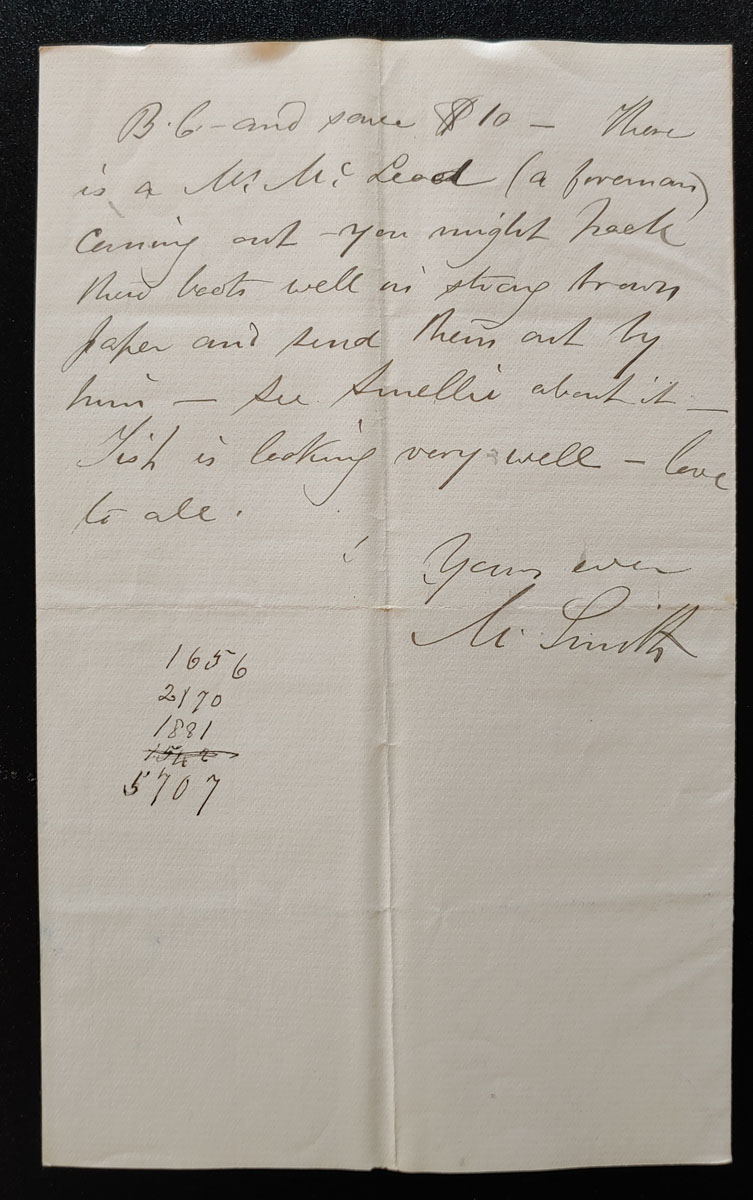 B.C. - and save $10 - There
is a Mr. Mc Leod (a foreman)
coming out - you might pack
these boots well in strong brown
paper and send them out by
him - see Smellie about it -
Tish is looking very well - love
to all.
Yours ever
M. Smith
1656
2170
1881
1542
5707